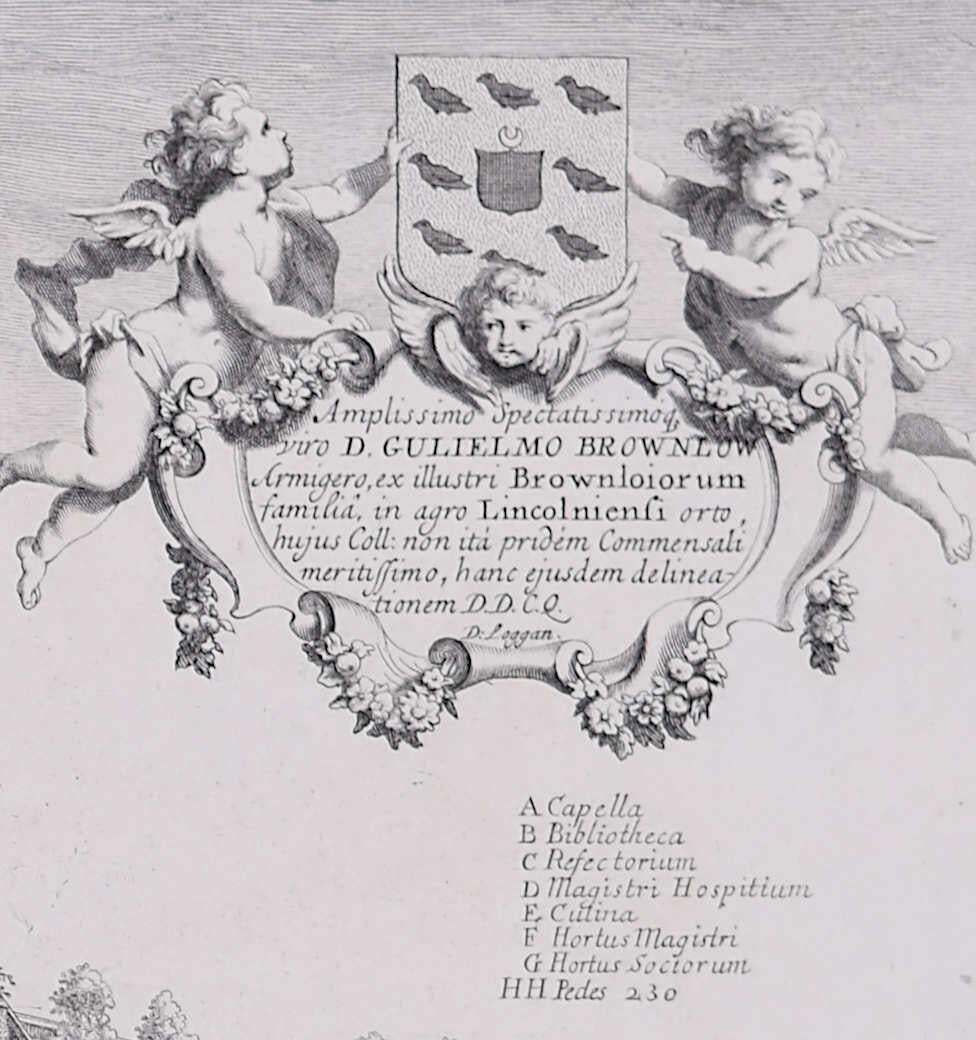 Amplissimo Spectatissimoq,
viro D. GULIELMO BROWNLOW
Armigero, ex illustri Brownloiorum
familiâ, in agro Lincolnienſi orto,
hujus Coll: non itá pridém Commensali
meritiſſimo, hanc ejusdem delinea-
tionem D.D.C.Q.
D: Loggan.
A Capella
B Bibliotheca
C Refectorium
D Magistri Hospitium
E Culina
F Hortus Magistri
G Hortus Sociorum
HH Pedes 230